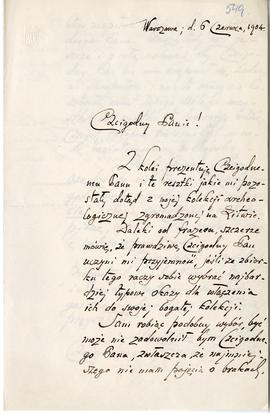 549
Warszawa, d. 6 Czerwca, 1904.
Czcigodny Panie!
Z kolei prezentuję Czcigodne-
mu Panu i te resztki jakie mi pozo-
stały, dotąd z mojej kolekcji archeo-
logicznej zgromadzonej na Litwie.
Daleki od frazesu, szczerze
mówię, że prawdziwą Czcigodny Pan
uczyni mi przyjemność, jeśli ze zbior-
ku tego raczy sobie wybrać najbar-
dziej typowe okazy dla włączenia
ich do swojej bogatej kolekcji.
Sam robiąc podobny wybór, być
może nie zadowolnił bym Czcigodne-
go Pana, zwłaszcza, że najmniej-
szego nie mam pojęcia o brakach,